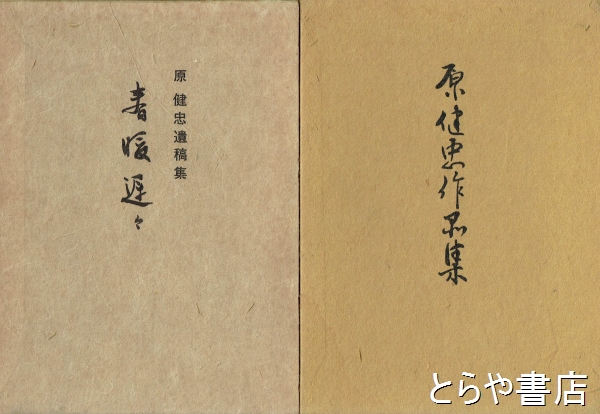 原 健忠遺稿集
春暖遅々
原健忠作品集
とらや書店